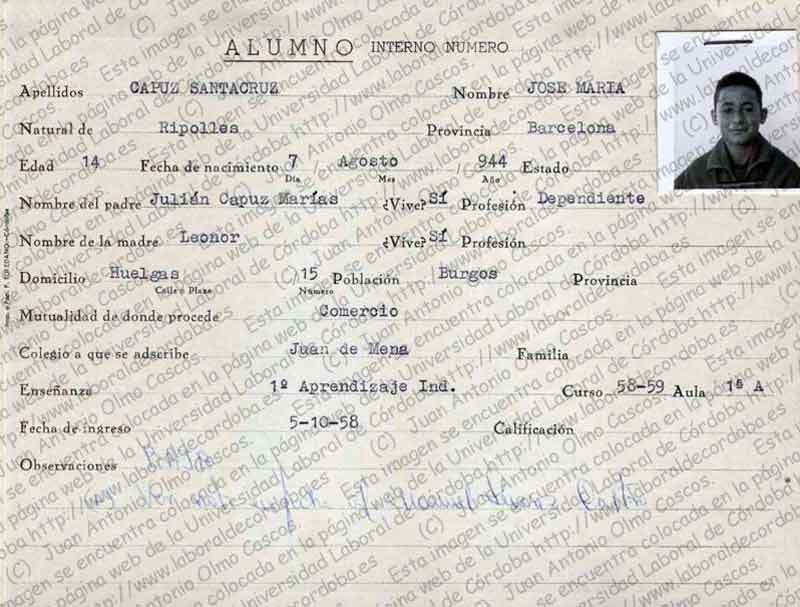 ALUMNO INTERNO NUMERO
Apellidos CAPUZ SANTACRUZ Nombre JOSE MARIA
Natural de Ripolles Provincia Barcelona
Edad 14 Fecha de nacimiento 7 / Agosto / 944 Estado
Día Mes Año
Nombre del padre Julián Capuz Marías ¿Vive? Sí Profesión Dependiente
Nombre de la madre Leonor ¿Vive? Sí Profesión
Domicilio Huelgas 15 Población Burgos Provincia
Calle o Plaza Número
Mutualidad de donde procede Comercio
Colegio a que se adscribe Juan de Mena Familia
Enseñanza 1º Aprendizaje Ind. Curso 58-59 Aula 1ª A
Fecha de ingreso 5-10-58 Calificación
Observaciones BAJA
(C) Juan Antonio Olmo Cascos. Esta imagen se encuentra colocada en la página web de la Universidad Laboral de Córdoba http://www.laboraldecordoba.es